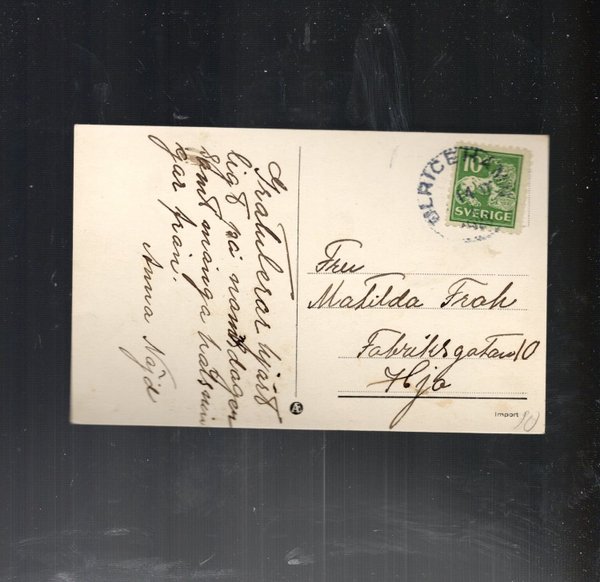 Gratulerar hjärt
ligt på namsdagen
samt många hälsnin
gar från.
Anna Nöjd
ULRICEHAMN
10
SVERIGE
Fru
Matilda Frah
Fabriksgatan 10
Hjo
Import
10